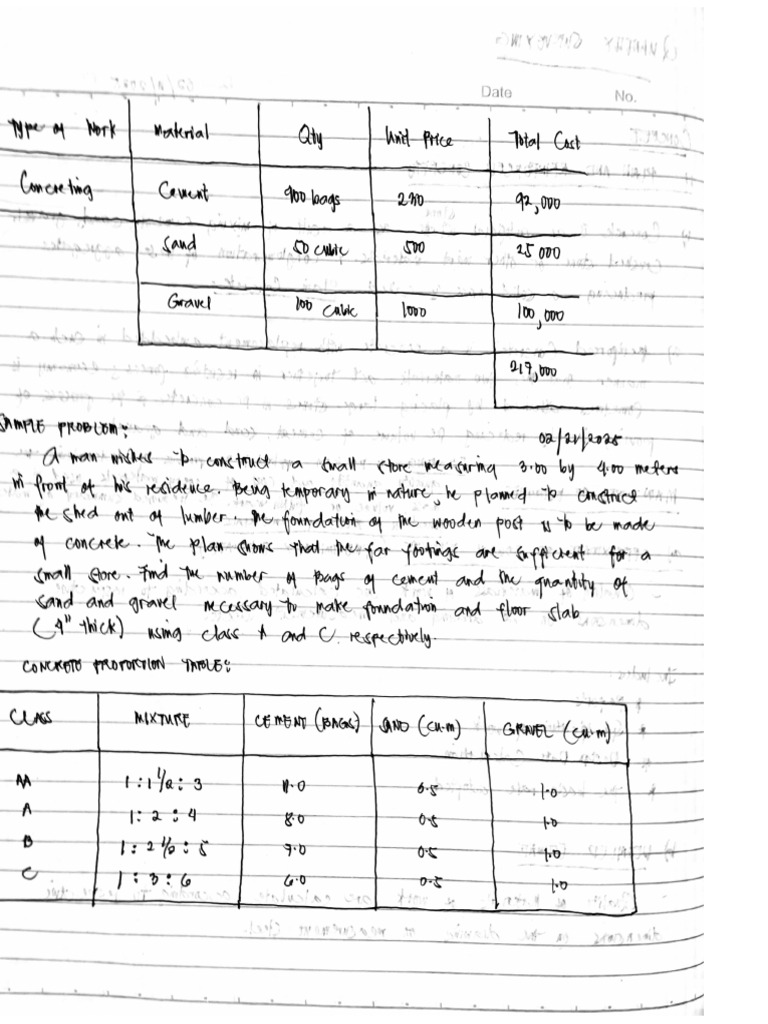 Date No.
Type of Work Material Qty Unit Price Total Cost
Concreting Cement 400 bags 230 92,000
Sand 50 cubic 500 25 000
Gravel 100 cubic 1000 100,000
217,000
SAMPLE PROBLEM: 02/21/2025
A man wishes to construct a small store measuring 3.00 by 4.00 meters
in front of his residence. Being temporary in nature, he planned to construct
the shed out of lumber. The foundation of the wooden post is to be made
of concrete. The plan shows that the far footings are sufficient for a
small store. Find the number of bags of cement and the quantity of
sand and gravel necessary to make foundation and floor slab
(4" thick) using class A and C respectively.
CONCRETE PROPORTION TABLE:
CLASS MIXTURE CEMENT (BAGS) SAND (CU.M) GRAVEL (CU.M)
AA 1 : 1 1/2 : 3 11.0 0.5 1.0
A 1 : 2 : 4 8.0 0.5 1.0
B 1 : 2 1/2 : 5 7.0 0.5 1.0
C 1 : 3 : 6 6.0 0.5 1.0